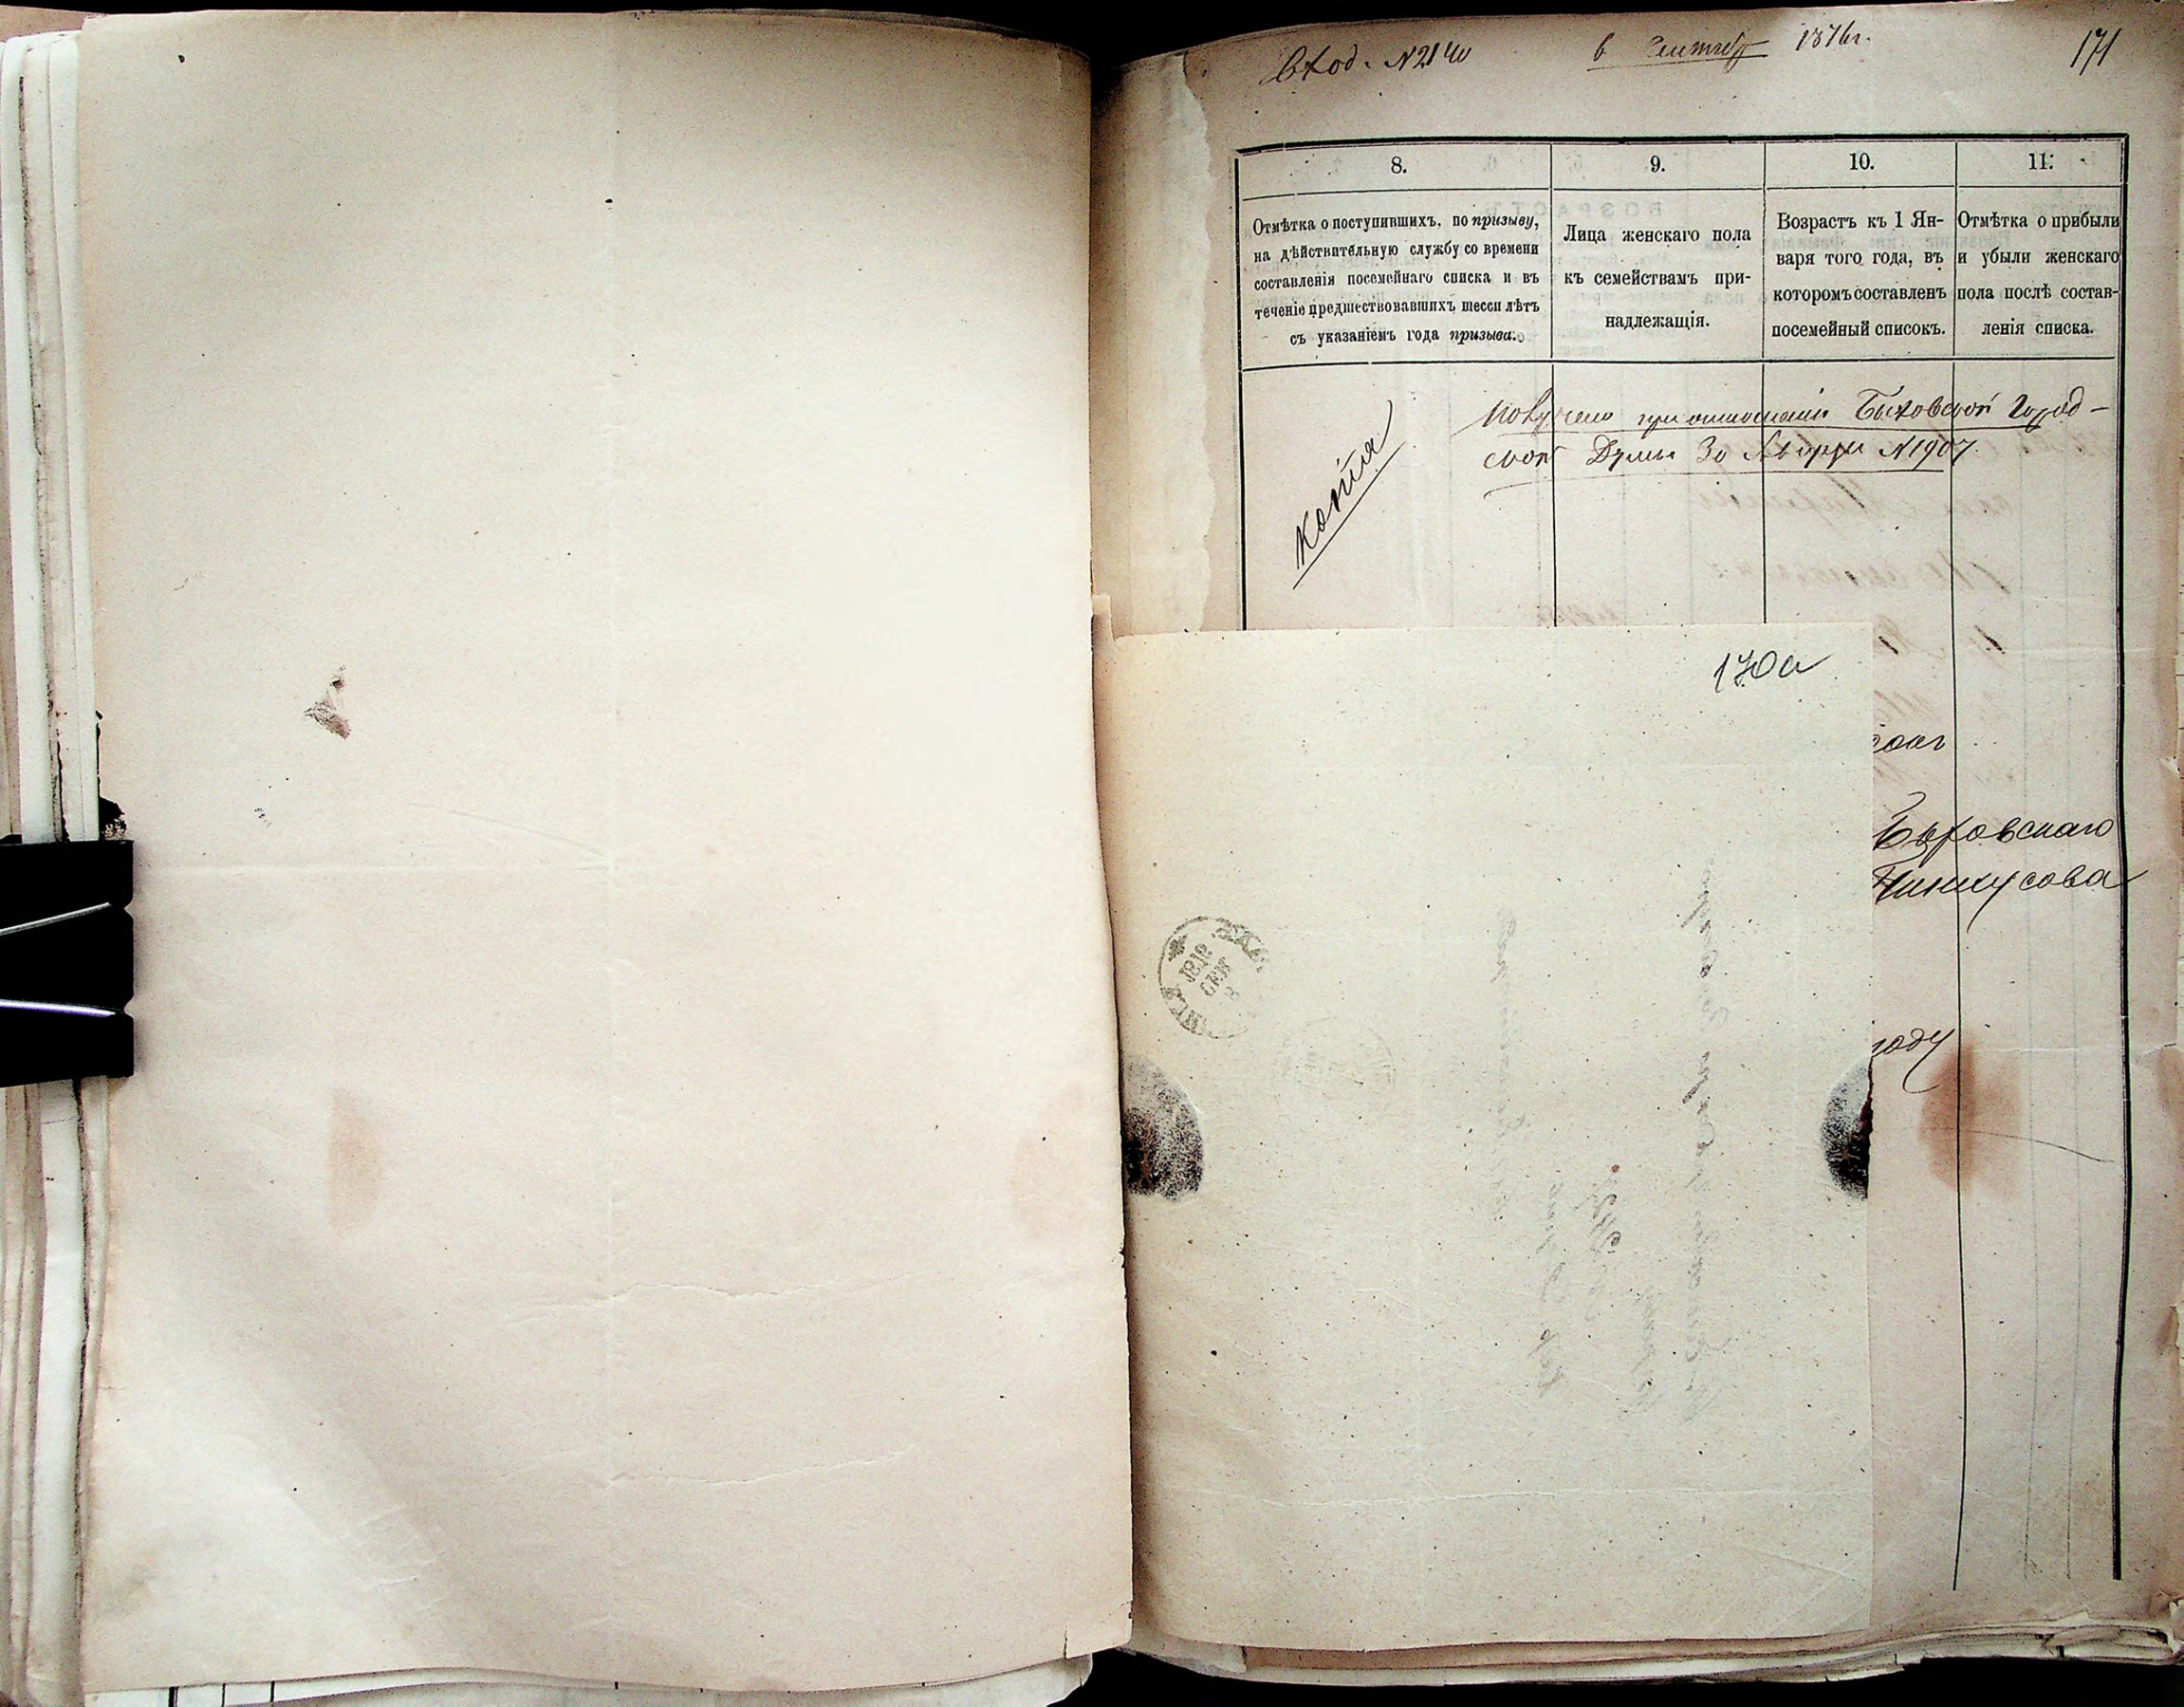 Вход. N2140 6 Сентябр 1876г. 171
8. 9. 10. 11.
Отмѣтка о поступившихъ, по призыву,
на дѣйствительную службу со времени
составленія посемейнаго списка и въ
теченіе предшествовавшихъ шести лѣтъ
съ указаніемъ года призыва.
Лица женскаго пола
къ семействамъ при-
надлежащія.
Возрастъ къ 1 Ян-
варя того года, въ
которомъ составленъ
посемейный списокъ.
Отмѣтка о прибыли
и убыли женскаго
пола послѣ состав-
ленія списка.
Копія
Получено при отношеніи Быховской Город-
ской Думы 30 N1907.
170а
Быховскаго
Пинкусова
году
1876
СЕН
8